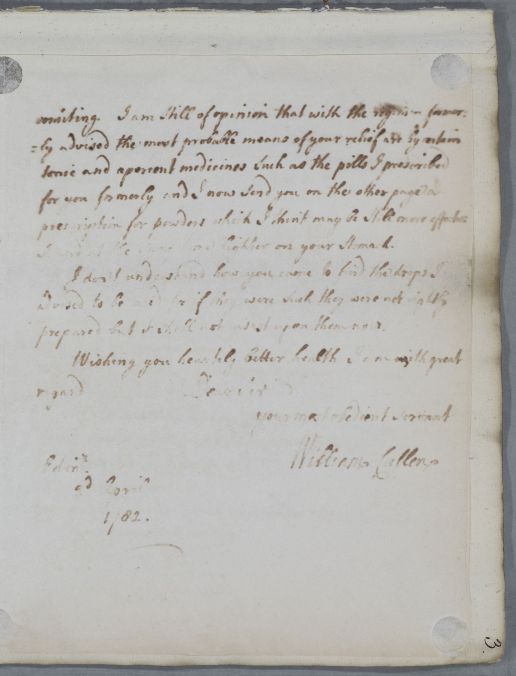 vomiting. I am Still of opinion that with the regimen former=
=ly advised the most probable means of your relief are by certain
tonic and aperient medicines such as the pills I prescribed
for you formerly and I now send you on the other page a
prescription for powders which I think may be Still more effectual
and at the same time lighter on your Stomach.
I don't understand how you came to find the drops I
advised to be acid for if they were such they were not rightly
prepared but I shall not insist upon them now.
Wishing you heartily better health I am with great
regard
Dear Sir
your most obedient Servant
William Cullen
Edinr.
2d April
1782.
3